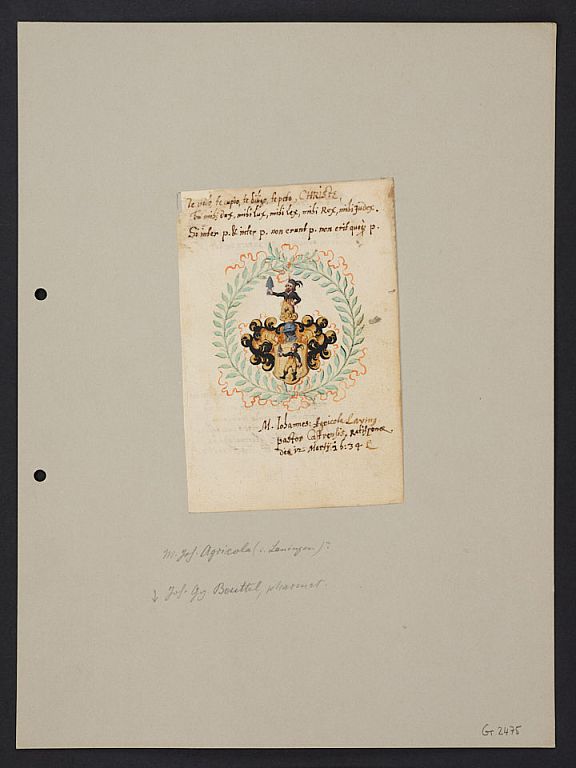 Te volo, te cupio, te, te peto, CHRISTE,
Tu mihi dux, mihi lux, mihi lex, mihi Rex, mihi Judex.
Si inter p. & inter p. non erunt p. non erit p.
M. Iohannes Agricola Lauing.
pastor Castrensis, Ratisponæ
die 12. Martij 1634
M. Joh. Agricola (. Lauingen)?
↘ Joh. Gg Beuttel, pharmat.
Gr 2475